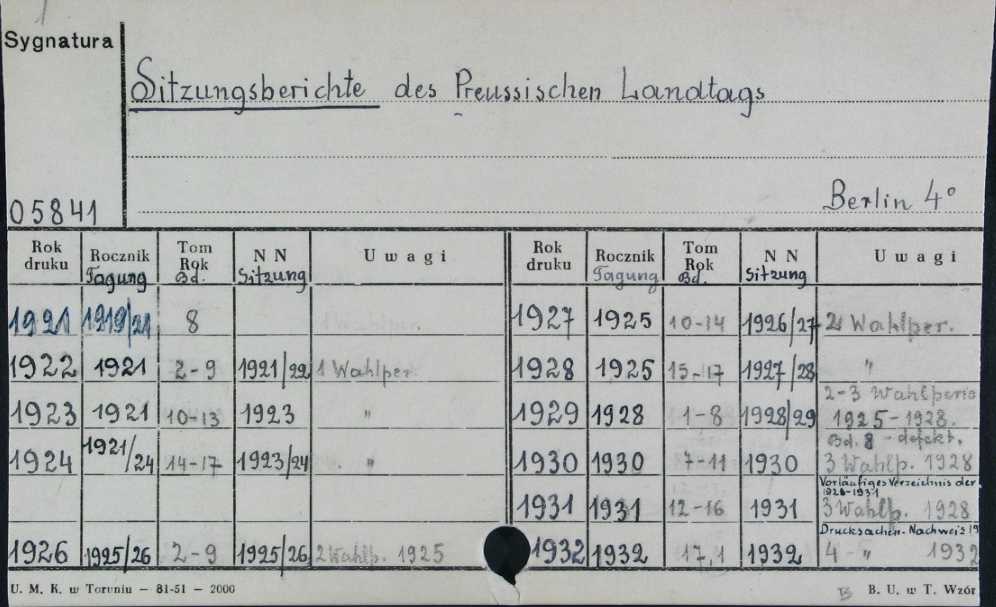 Sygnatura
Sitzungsberichte des Preussischen Landtags
Berlin 4°
05841
Rok druku Rocznik Tagung Tom Rok Bd. N N Sitzung Uwagi
1921 1919/21 8
1922 1921 2-9 1921/22 1 Wahlper.
1923 1921 10-13 1923 "
1924 1921/24 14-17 1923/24 "
1926 1925/26 2-9 1925/26 2 Wahlp. 1925
Rok druku Rocznik Tagung Tom Rok Bd. N N Sitzung Uwagi
1927 1925 10-14 1926/27 2 Wahlper.
1928 1925 15-17 1927/28 "
2-3 Wahlperio
1929 1928 1-8 1928/29 1925-1928.
Bd. 8 - defekt.
1930 1930 7-11 1930 3 Wahlp. 1928
Vorläufiges Verzeichnis der
1928-1931
1931 1931 12-16 1931 3 Wahlp. 1928
Drucksachen-Nachweis 19
1932 1932 17,1 1932 4 - " 1932
U. M. K. w Toruniu — 81-51 — 2000
B. U. w T. Wzór